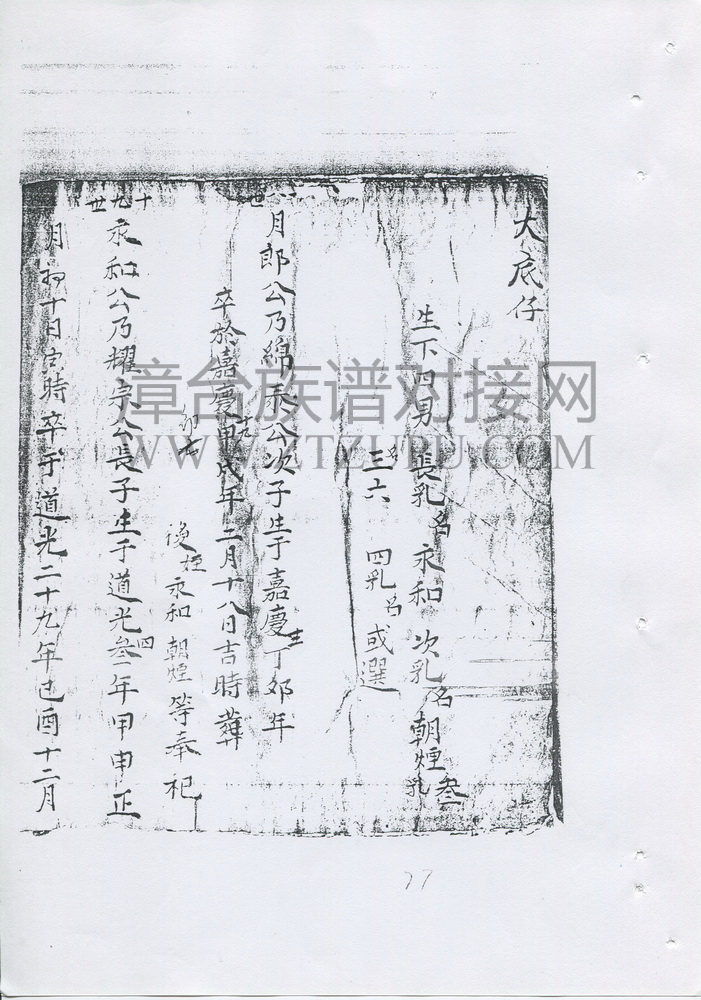 大底仔
生下四男 長乳名永和 次乳名朝煙 叁乳
名三六 四乳名或選
十八世
月郎公乃綿泰公次子生于嘉慶十二丁卯年
卒於嘉慶十九甲戌年二月十八日吉時葬
後侄永和 朝煙等奉祀
十九世
永和公乃耀宗公長子生于道光叁四年甲申正
月初十日吉時卒于道光二十九年己酉十二月
章台族谱对接网
WWW.ZTZUPU.COM
77